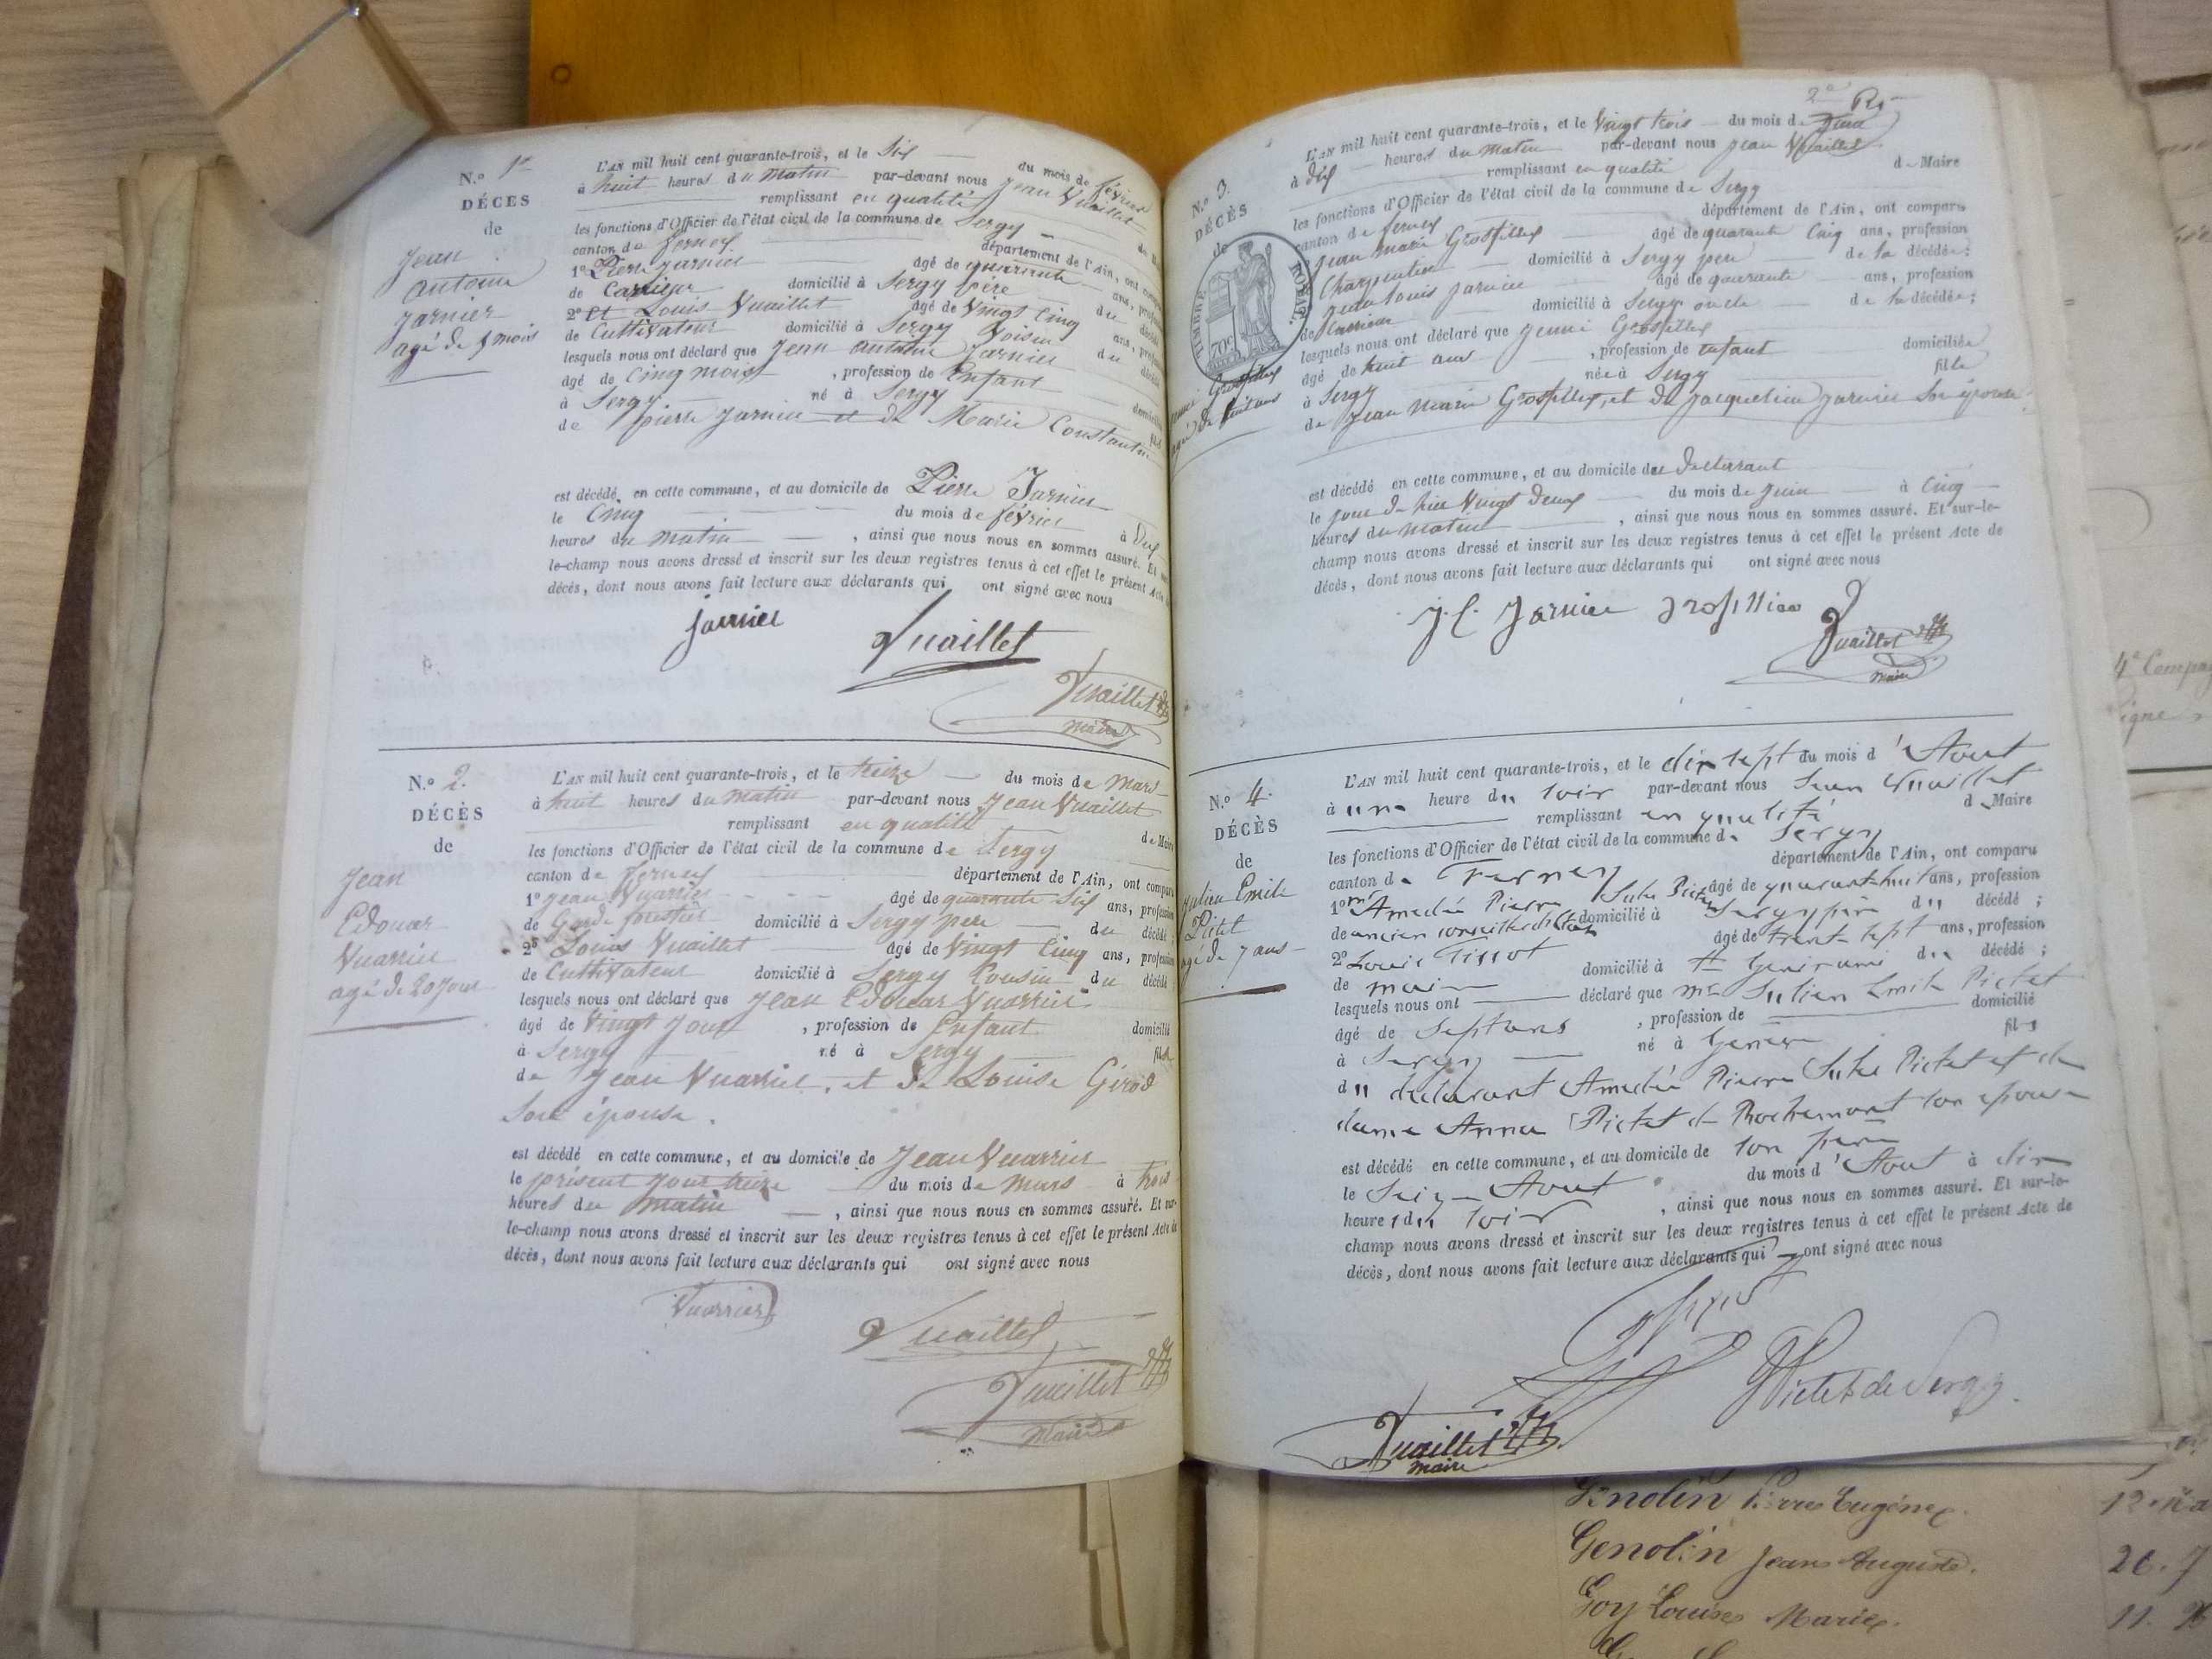 N.o 1er
DÉCES
de
Jean
Antoine
Jarnier
agé de 5 mois
L'AN mil huit cent quarante-trois, et le Six du mois de février
à huit heures du matin par-devant nous Jean Vuaillet
remplissant en qualité
les fonctions d'Officier de l'état civil de la commune de Sergy
canton de ferney département de l'Ain, ont
1o Pierre Jarnier âgé de quarante ans,
de Carrieur domicilié à Sergy père du
2o et Louis Vuaillet âgé de Vingt Cinq ans,
de Cultivateur domicilié à Sergy Voisin du
lesquels nous ont déclaré que Jean Antoine Jarnier
âgé de Cinq mois , profession de Enfant
à Sergy né à Sergy
de pierre Jarnier et de Marie Constantin
est décédé en cette commune, et au domicile de Pierre Jarnier
le Cinq du mois de février à dix
heures du matin , ainsi que nous nous en sommes assuré. Et
le-champ nous avons dressé et inscrit sur les deux registres tenus à cet effet le présent Acte
décès, dont nous avons fait lecture aux déclarants qui ont signé avec nous
Jarnier
Vuaillet
Vuaillet
maire
N.o 2.
DÉCÈS
de
Jean
Edouar
Vuarrier
agé de 20 jours
L'AN mil huit cent quarante-trois, et le treize du mois de Mars
à huit heures du matin par-devant nous Jean Vuaillet
remplissant en qualité de Maire
les fonctions d'Officier de l'état civil de la commune de Sergy
canton de ferney département de l'Ain, ont comparu
1o Jean Vuarrier âgé de quarante Six ans, profession
de Garde forestier domicilié à Sergy père du décédé ;
2o Louis Vuaillet âgé de Vingt Cinq ans, profession
de Cultivateur domicilié à Sergy Cousin du décédé
lesquels nous ont déclaré que Jean Edouar Vuarrier
âgé de Vingt jours , profession de Enfant domicilié
à Sergy né à Sergy fils
de Jean Vuarrier, et de Louise Girod
Son épouse.
est décédé en cette commune, et au domicile de Jean Vuarrier
le présent jour treize du mois de mars à trois
heures du matin , ainsi que nous nous en sommes assuré. Et sur-
le-champ nous avons dressé et inscrit sur les deux registres tenus à cet effet le présent Acte de
décès, dont nous avons fait lecture aux déclarants qui ont signé avec nous
Vuarrier
Vuaillet
Vuaillet
Maire
2e Rs
N.o 3.
DÉCÈS
de
TIMBRE ROYAL.
70c
Grosfillex
agé de huit ans
L'AN mil huit cent quarante-trois, et le Vingt trois du mois de Juin
à dix heures du matin par-devant nous Jean Vuaillet
remplissant en qualité de Maire
les fonctions d'Officier de l'état civil de la commune de Sergy
canton de ferney département de l'Ain, ont comparu
Jean marie Grosfillex âgé de quarante Cinq ans, profession
Charpentier domicilié à Sergy père de la décédée :
Jean Louis Jarnier âgé de quarante ans, profession
de Carrieur domicilié à Sergy oncle de la décédée ;
lesquels nous ont déclaré que Jenni Grosfillex
âgé de huit ans , profession de enfant domiciliée
à Sergy née à Sergy fille
de Jean Marie Grosfillex, et de Jacqueline Jarnier Son épouse.
est décédé en cette commune, et au domicile du declarant
le jour d hier Vingt deux du mois de juin à Cinq
heures du matin , ainsi que nous nous en sommes assuré. Et sur-le-
champ nous avons dressé et inscrit sur les deux registres tenus à cet effet le présent Acte de
décès, dont nous avons fait lecture aux déclarants qui ont signé avec nous
J. L. Jarnier
Vuaillet
maire
N.o 4.
DÉCÈS
de
Julien Emile
Pictet
agé de 7 ans
L'AN mil huit cent quarante-trois, et le dix sept du mois d'Aout
à une heure du soir par-devant nous Jean Vuaillet
remplissant en qualité de Maire
les fonctions d'Officier de l'état civil de la commune de Sergy
canton de Ferney département de l'Ain, ont comparu
1o mr Amedée Pierre Jules Pictet âgé de quarante huit ans, profession
de ancien conseiller d'état domicilié à Sergy père du décédé ;
2o Louis Tissot âgé de trente sept ans, profession
de maire domicilié à du décédé ;
lesquels nous ont déclaré que mr Julien Emile Pictet
âgé de Sept ans , profession de domicilié
à Sergy né à Genève fils
du déclarant Amedée Pierre Jules Pictet et de
dame Anna Pictet de Rochemont son épouse
est décédé en cette commune, et au domicile de son père
le Seize Aout du mois d'Aout à dix
heures du soir , ainsi que nous nous en sommes assuré. Et sur-le-
champ nous avons dressé et inscrit sur les deux registres tenus à cet effet le présent Acte de
décès, dont nous avons fait lecture aux déclarants qui ont signé avec nous
Pictet de Sergy.
Vuaillet
maire
4e
Genolin Pierre Eugène. 12.
Genolin Jean Auguste. 26. J
Goy Louise Marie. 11.